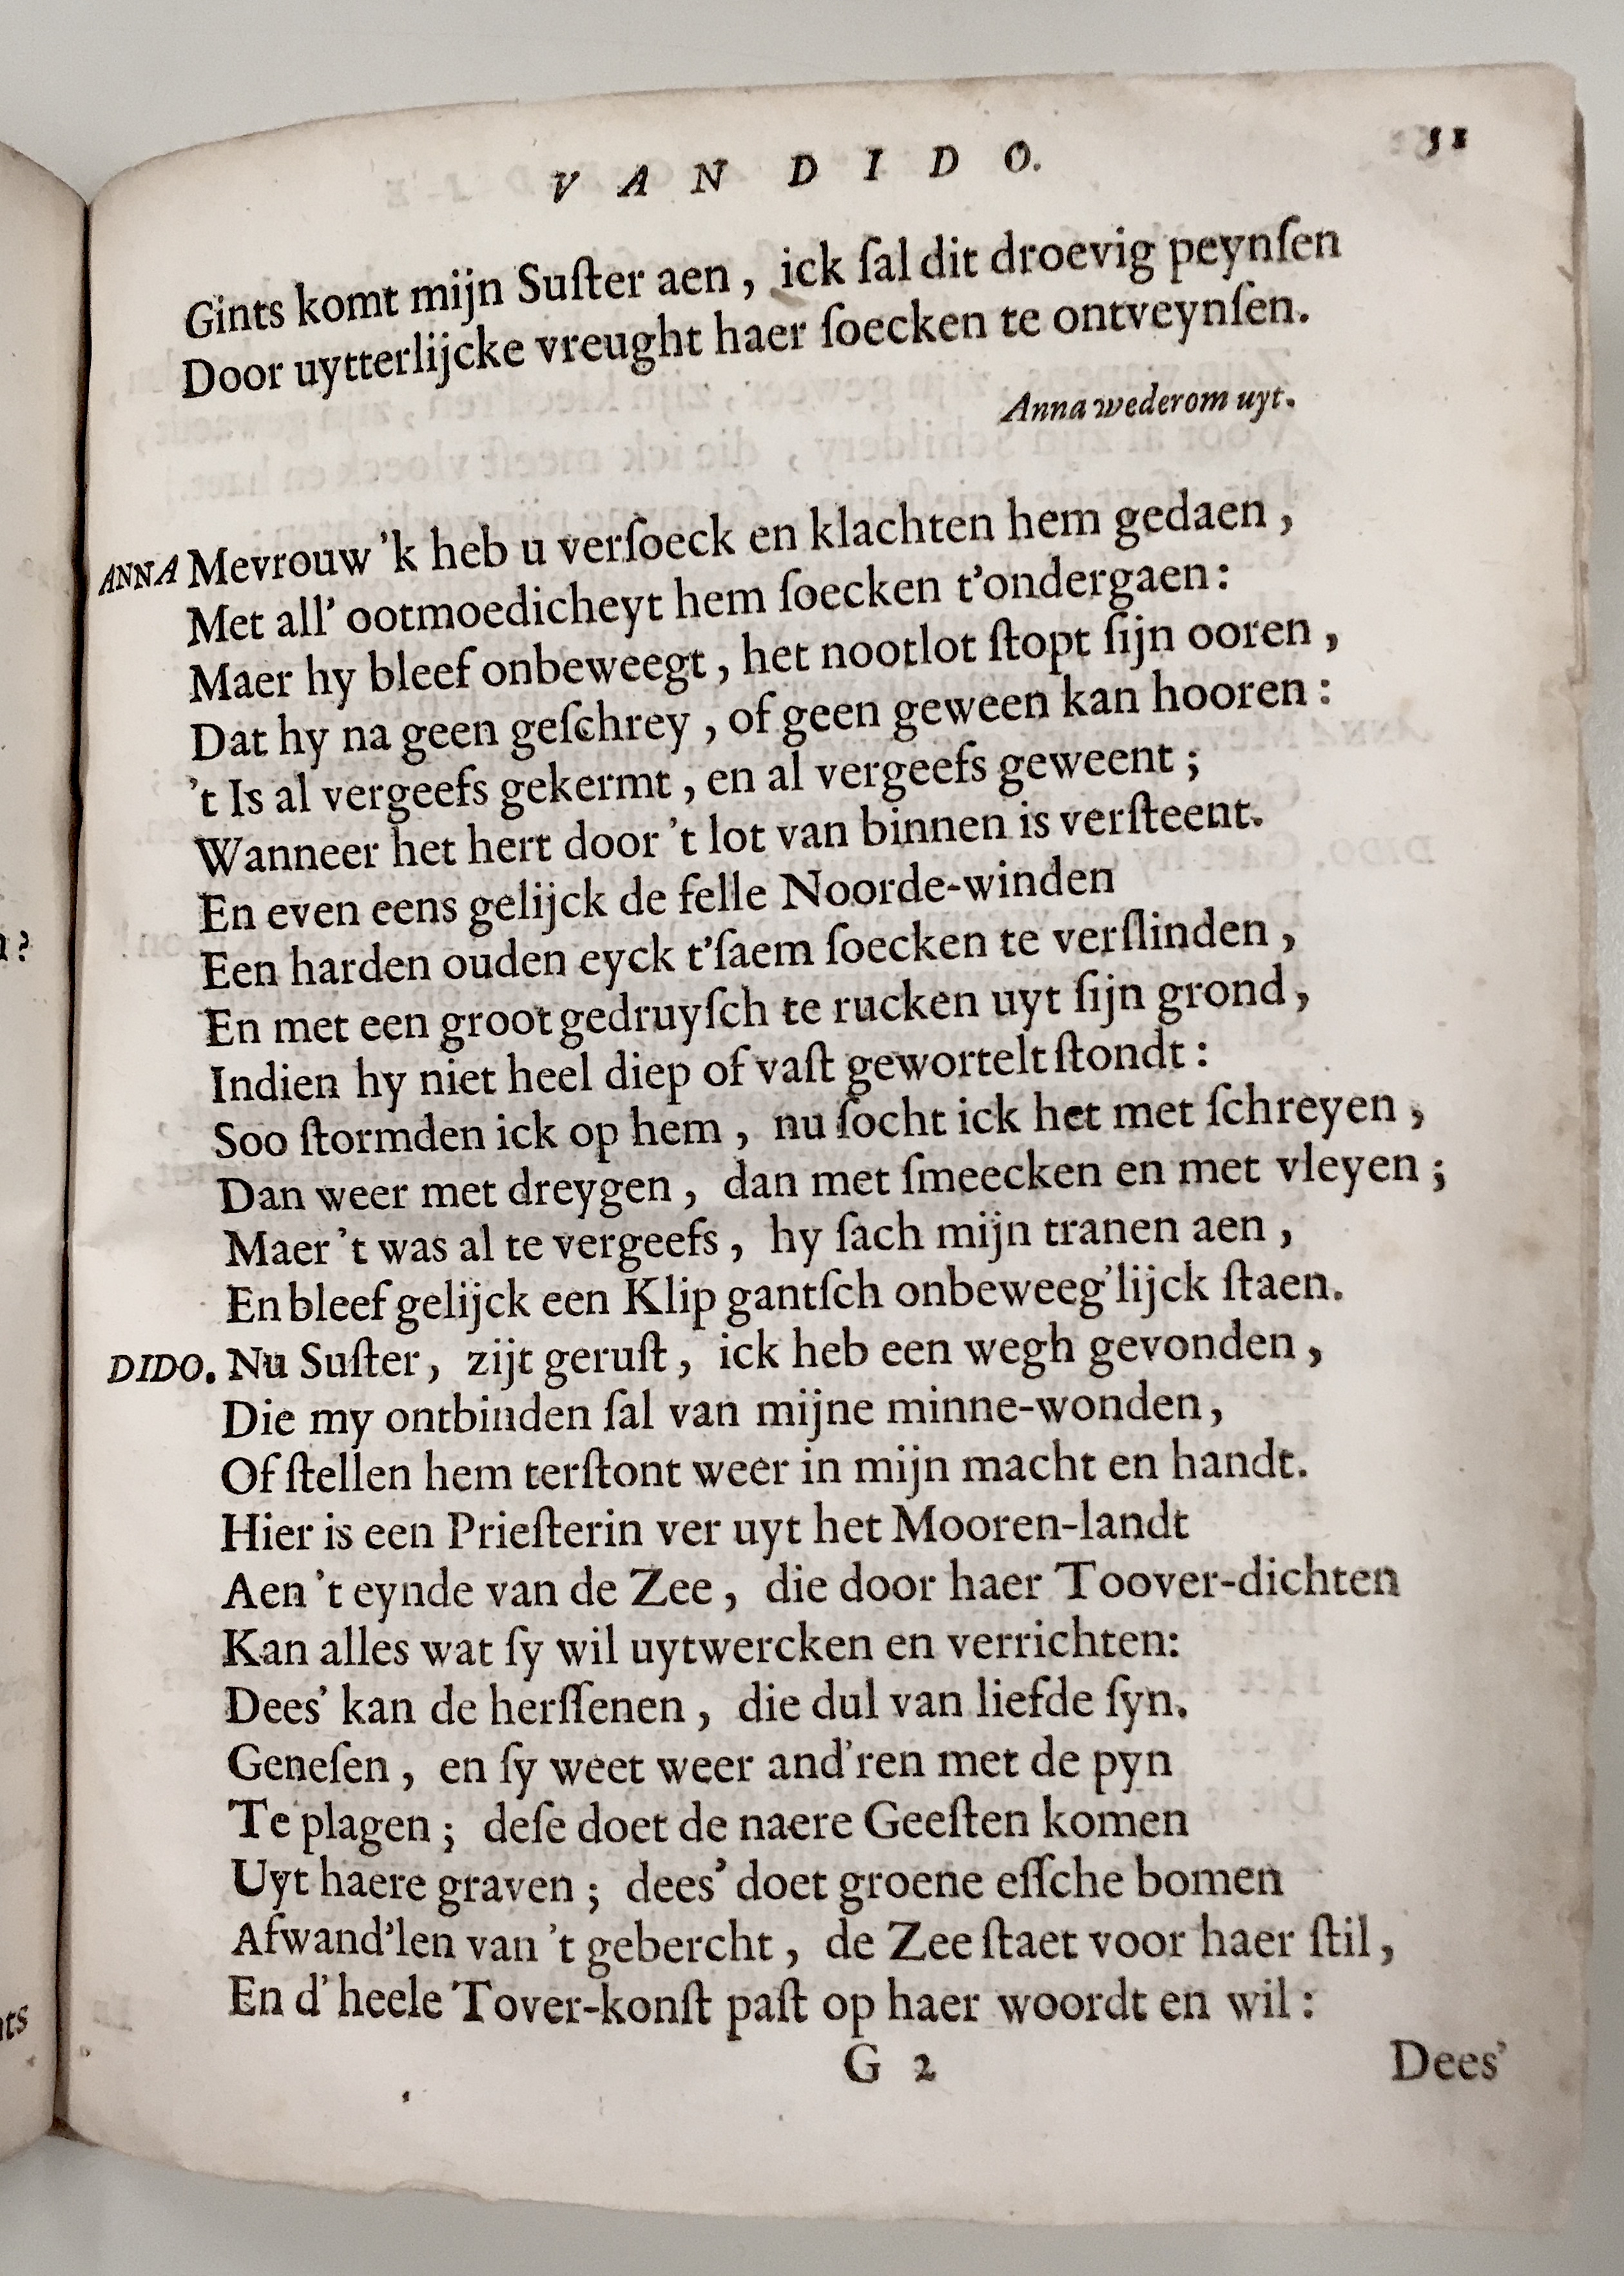 VAN DIDO. 51
Gints komt mijn Suſter aen, ick ſal dit droevig peynſen
Door uytterlijcke vreught haer ſoecken te ontveynſen.
Anna wederom uyt.
ANNA Mevrouw 'k heb u verſoeck en klachten hem gedaen,
Met all' ootmoedicheyt hem ſoecken t'ondergaen:
Maer hy bleef onbeweegt, het nootlot ſtopt ſijn ooren,
Dat hy na geen geſchrey, of geen geween kan hooren:
't Is al vergeefs gekermt, en al vergeefs geweent;
Wanneer het hert door 't lot van binnen is verſteent.
En even eens gelijck de felle Noorde-winden
Een harden ouden eyck t'ſaem ſoecken te verſlinden,
En met een groot gedruyſch te rucken uyt ſijn grond,
Indien hy niet heel diep of vaſt gewortelt ſtondt:
Soo ſtormden ick op hem, nu ſocht ick het met ſchreyen,
Dan weer met dreygen, dan met ſmeecken en met vleyen;
Maer 't was al te vergeefs, hy ſach mijn tranen aen,
En bleef gelijck een Klip gantſch onbeweeg'lijck ſtaen.
DIDO. Nu Suſter, zijt geruſt, ick heb een wegh gevonden,
Die my ontbinden ſal van mijne minne-wonden,
Of ſtellen hem terſtont weer in mijn macht en handt.
Hier is een Prieſterin ver uyt het Mooren-landt
Aen 't eynde van de Zee, die door haer Toover-dichten
Kan alles wat ſy wil uytwercken en verrichten:
Dees' kan de herſſenen, die dul van liefde ſyn.
Geneſen, en ſy weet weer and'ren met de pyn
Te plagen; deſe doet de naere Geeſten komen
Uyt haere graven; dees' doet groene eſſche bomen
Afwand'len van 't gebercht, de Zee ſtaet voor haer ſtil,
En d'heele Tover-konſt paſt op haer woordt en wil:
G 2 Dees'